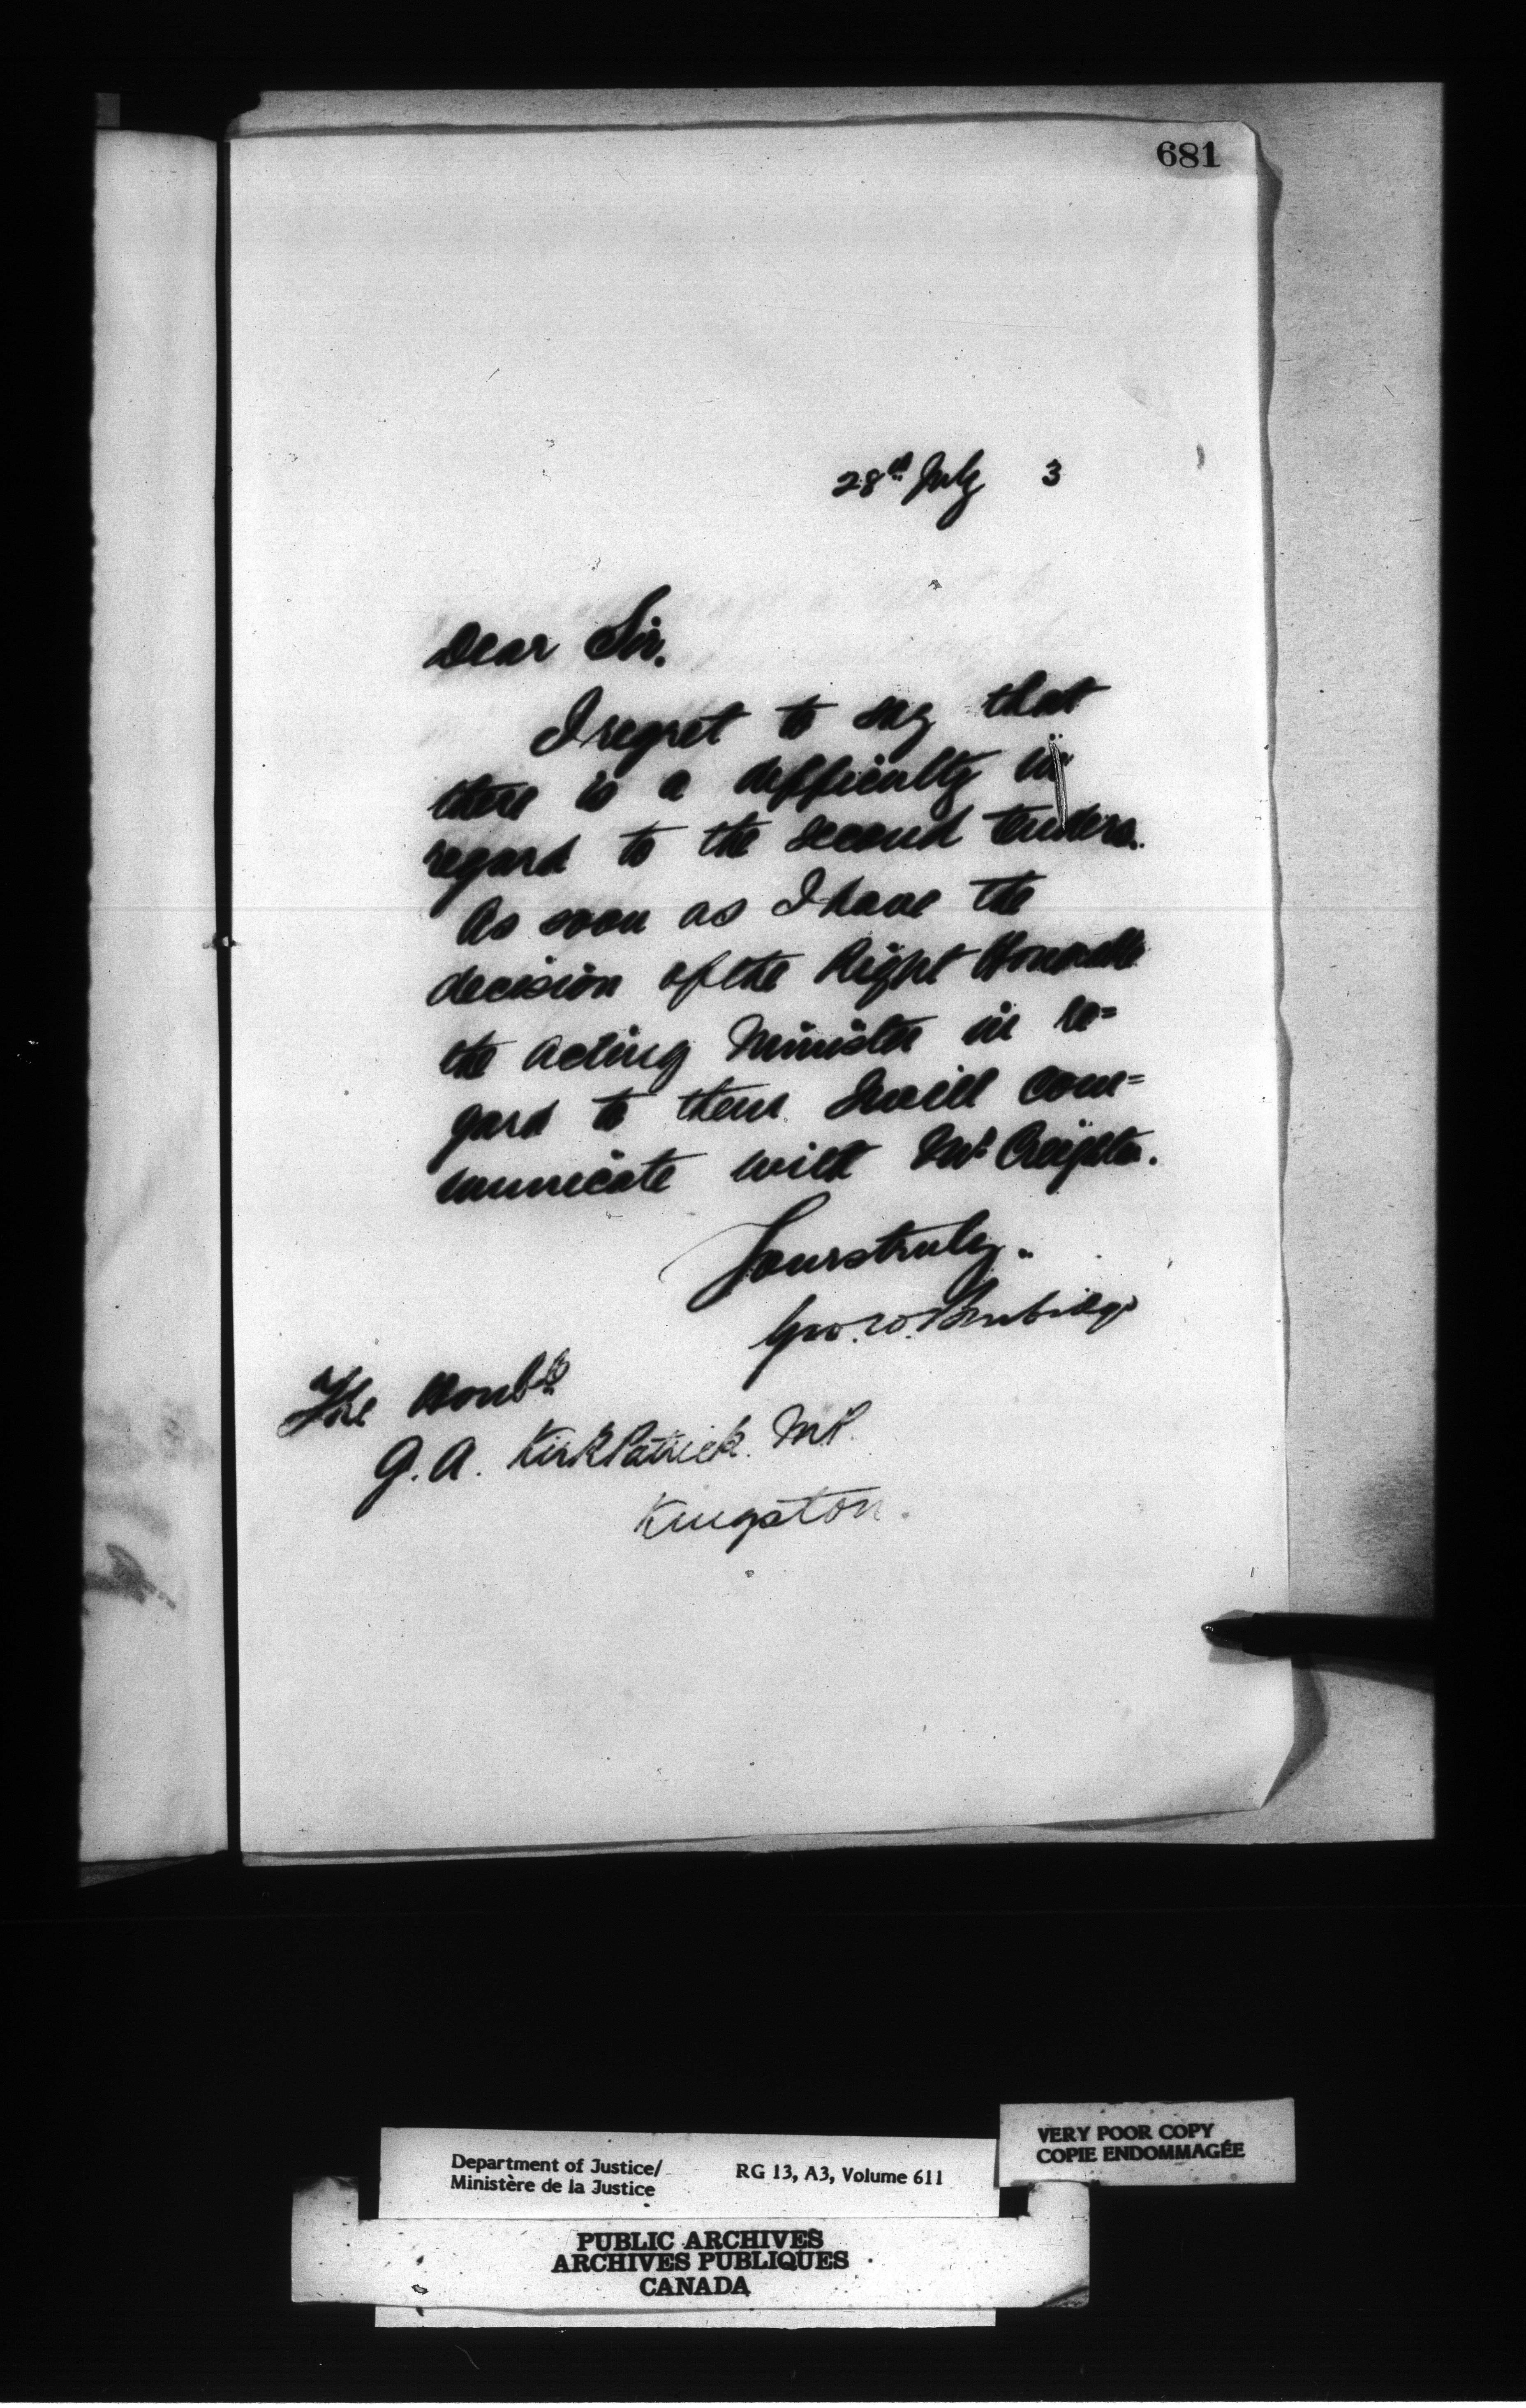 681
28th July 3
Dear Sir.
I regret to say that
there is a difficulty in
regard to the second tenders.
As soon as I have the
decision of the Right Honorable
the acting Minister in re=
gard to them I will com=
municate with Mr Creighton.
Yours truly.
Geo. W. Burbidge
The Honble
G. A. KirkPatrick. M.P.
Kingston.
VERY POOR COPY
COPIE ENDOMMAGÉE
Department of Justice/ RG 13, A3, Volume 611
Ministère de la Justice
PUBLIC ARCHIVES
ARCHIVES PUBLIQUES
CANADA